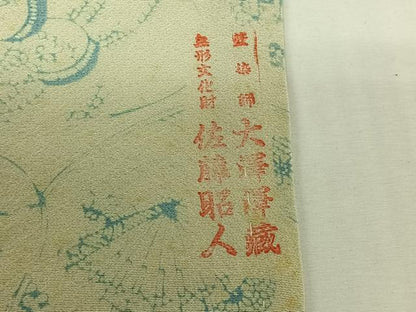 染師
大澤澤蔵
無形文化財
佐藤昭人